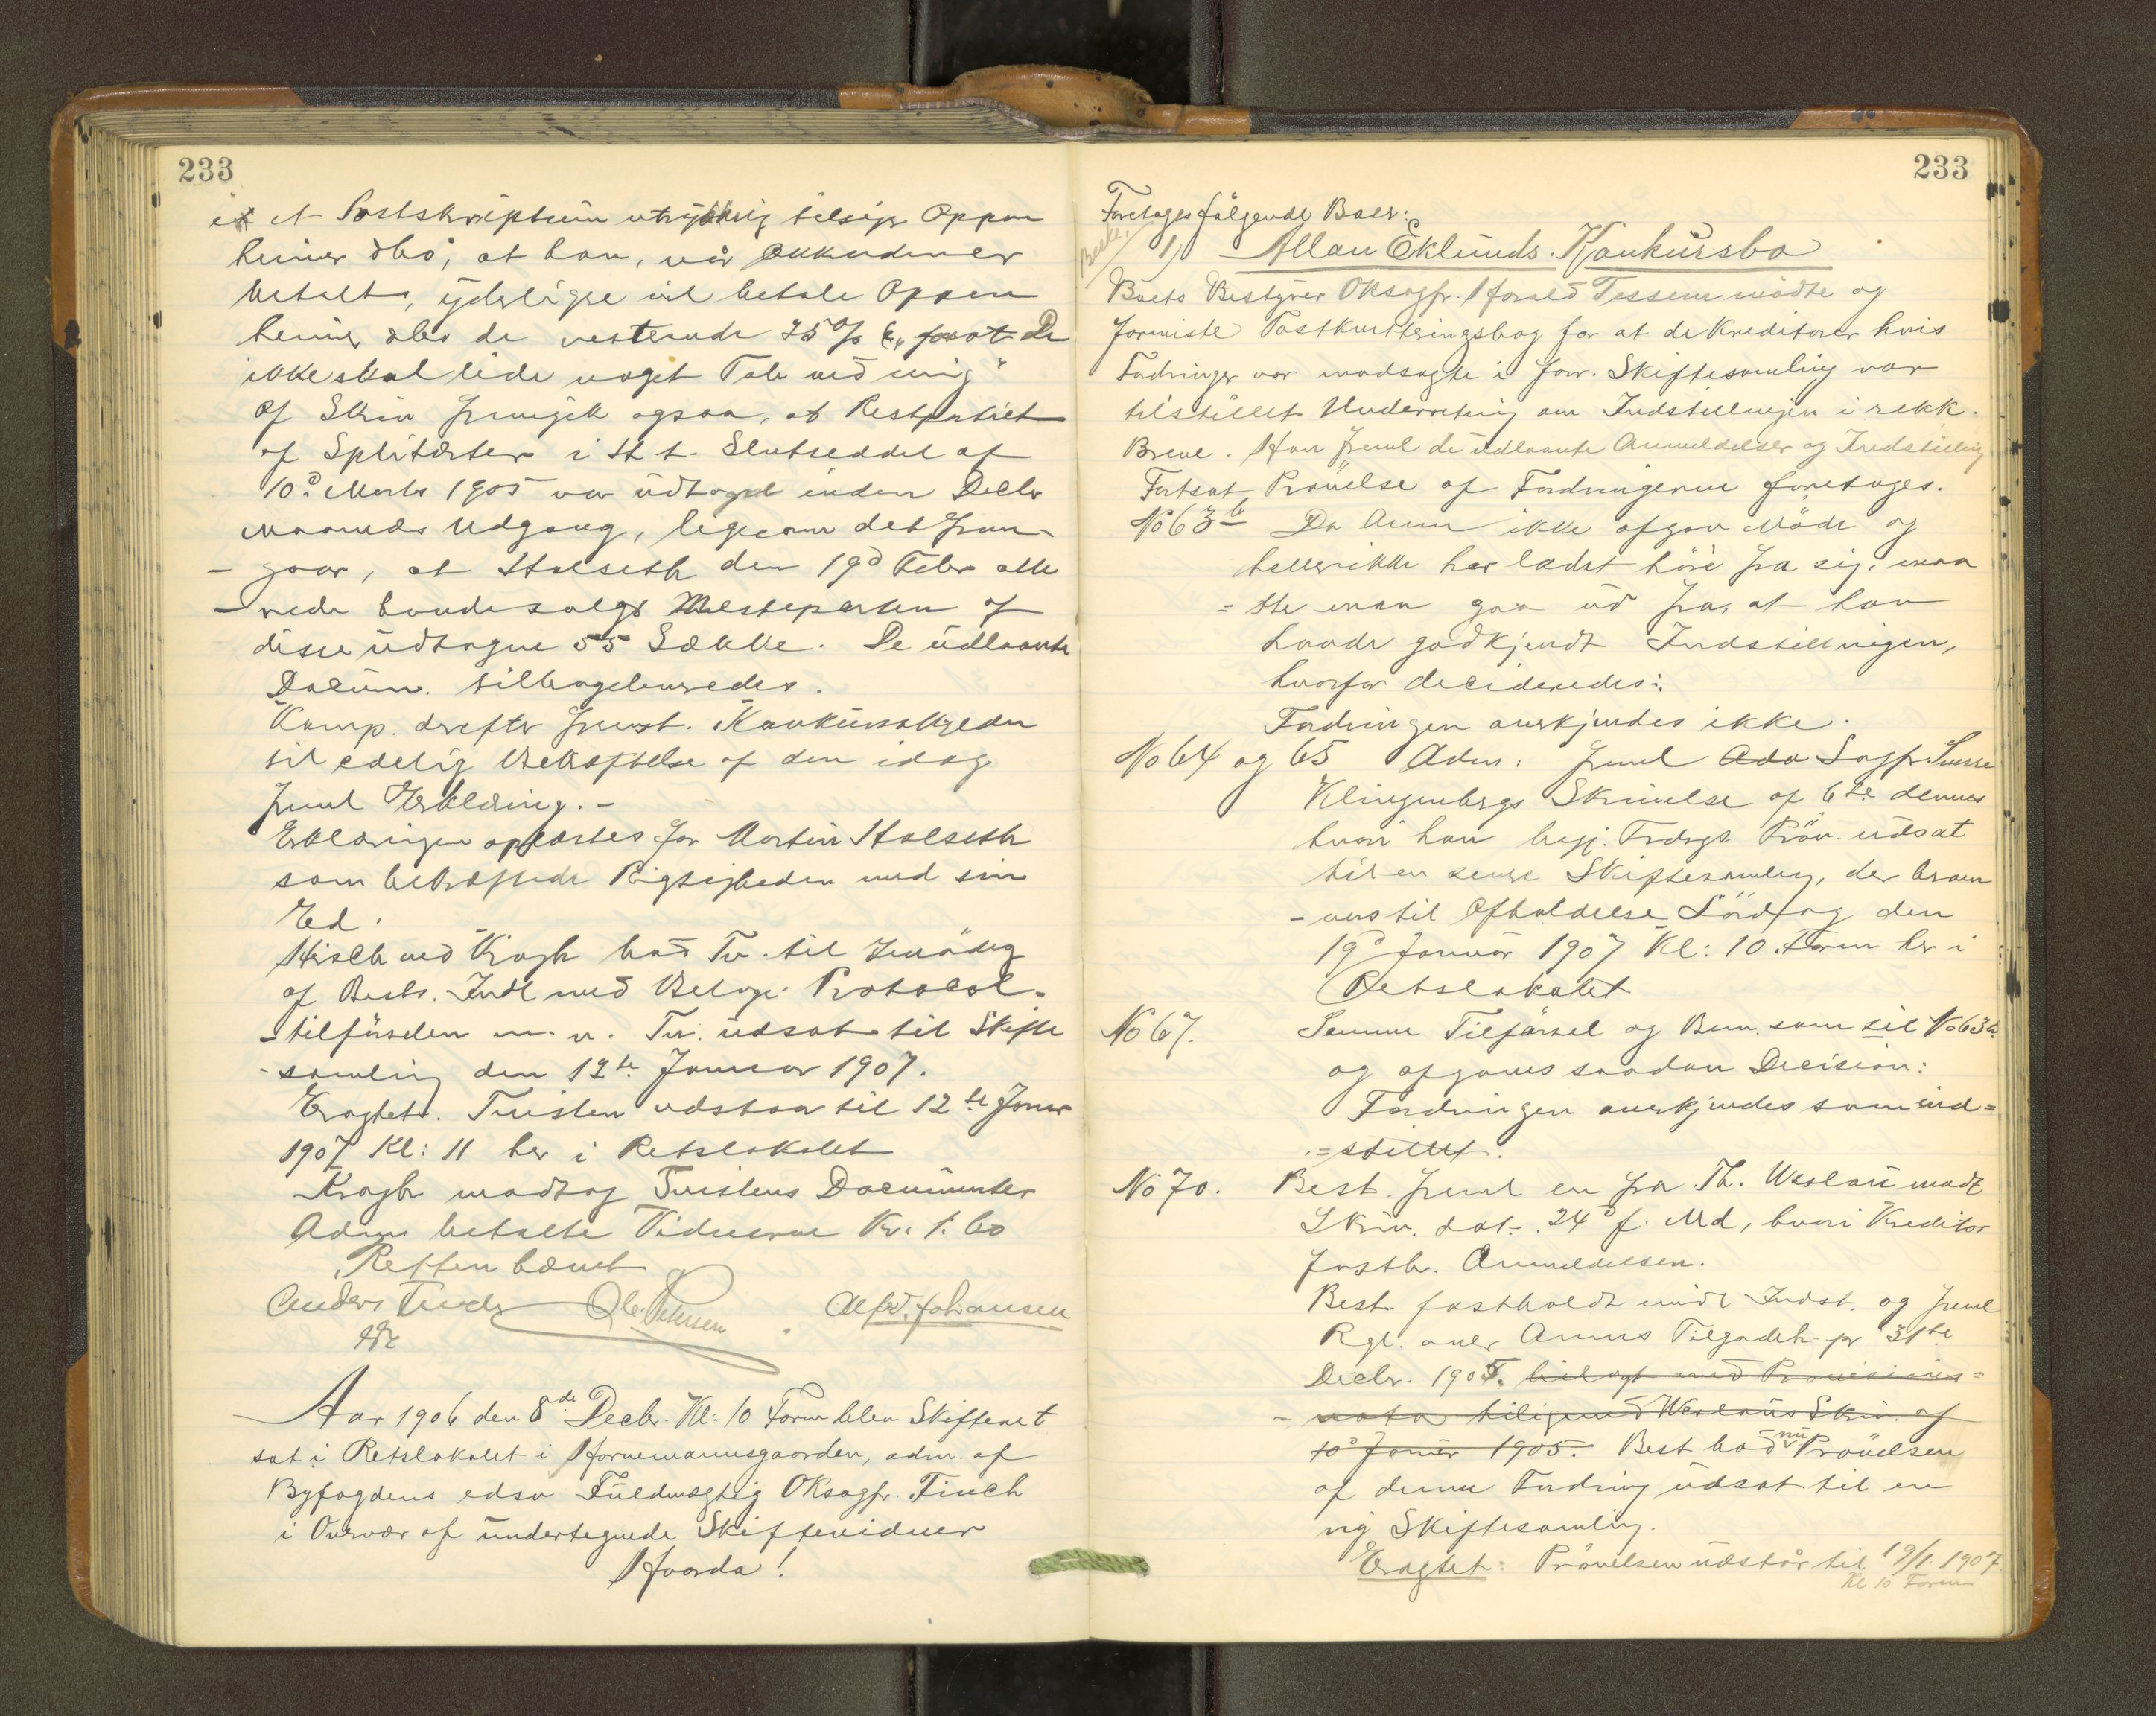 233
i et Postskriptum utrykkelig tilsiger Oppen
heimer dbo, at han, når Akkorden er
betalt, yderligere vil betale Oppen
heimer dbo de resterende 75 % ("forat De
ikke skal lide noget Tab ved mig"
Af Skriv fremgik ogsaa, at Restpartiet
af Spliterter i H. t. Slutseddel af
10d Marts 1905 var udtaget inden Decbr
maaneds Udgang, ligesom det frem-
- gaar, at Halseth den 19d Febr alle
- rede havde solgt Mesteparten af
disse udtagne 55 Sække. De udlaante
Docum. tilbageleveredes.
Komp. derefter fremst. Konkursskylder
til edelig Bekræftelse af den idag
freml Erklæring. -
Erklæringen oplæstes for Martin Halseth
som bekræftede Rigtigheden med sin
Ed.
Hirsch ved Krogh bad Tv. til Imødeg
af Bests. Indl med Bilage Protocol-
- tilførselen m. v. Tv. udsat til Skifte
- samling den 12te Januar 1907.
Eragtet. Tvisten udstaar til 12te Januar
1907 Kl: 11 her i Retslokalet
Krogh modtog Tvistens Documenter
Adm betalte Vidnerne Kr. 1.60
Retten hævet
Anders Ole Petersen Alfr. Johansen
Aar 1906 den 8de Decbr. Kl: 10 Form blev Skifteret
sat i Retslokalet i Hornemannsgaarden, adm. af
Byfogdens edsv Fuldmægtig OKsagf. Finch
i Overvær af undertegnede Skiftevidner
Hvorda!
233
Foretoges følgende Boer:
1) Allan Eklunds Konkursbo
Boets Bestyrer OKsagf. Harald Tessem mødte og
forviste Postkvitteringsbog for at de Kreditorer hvis
Fordringer var modsagte i forr. Skiftesamling var
tilstillet Underretning om Indstillingen i rekk.
Breve. Han freml de udlaante Anmeldelser og Indstilling
Fortsat Prøvelse af Fordringerne foretoges.
No 63b Da Anm ikke afgav Møde og
heller ikke har ladet høre fra sig, maa
= tte man gaa ud fra, at han
havde godkjendt Indstillingen,
hvorfor decideredes:
Fordringen anerkjendes ikke.
No 64 og 65 Adm: freml Ada Sagf. Sverre
Klingenbergs Skrivelse af 6te dennes
hvori han begj. Fordrgs Prøv. udsat
til en senere Skiftesamling, der beram
- mes til Afholdelse Lördag den
19d Januar 1907 Kl: 10 Form her i
Retslokalet
No 67. Samme Tilførsel og Bem. som til No 63b
og afgaves saadan Decision:
Fordringen anerkjendes som ind=
= stillet.
No 70. Best. freml en fra Th. Weslau modt
Skriv. dat. 24d f. Md, hvori Kreditor
fasth. Anmeldelsen.
Best. fastholdt Indst. og freml
Rgl. over Anms Tilgodeh. pr 31te
Decbr. 1905. bilagt med Provisions=
- nota tilligemed Weslaus Skriv. af
10d Januar 1905. Best bad nu Prøvelsen
af denne Fordring udsat til en
ny Skiftesamling.
Eragtet: Prøvelsen udstår til 19/1 1907.
Kl 10 Form